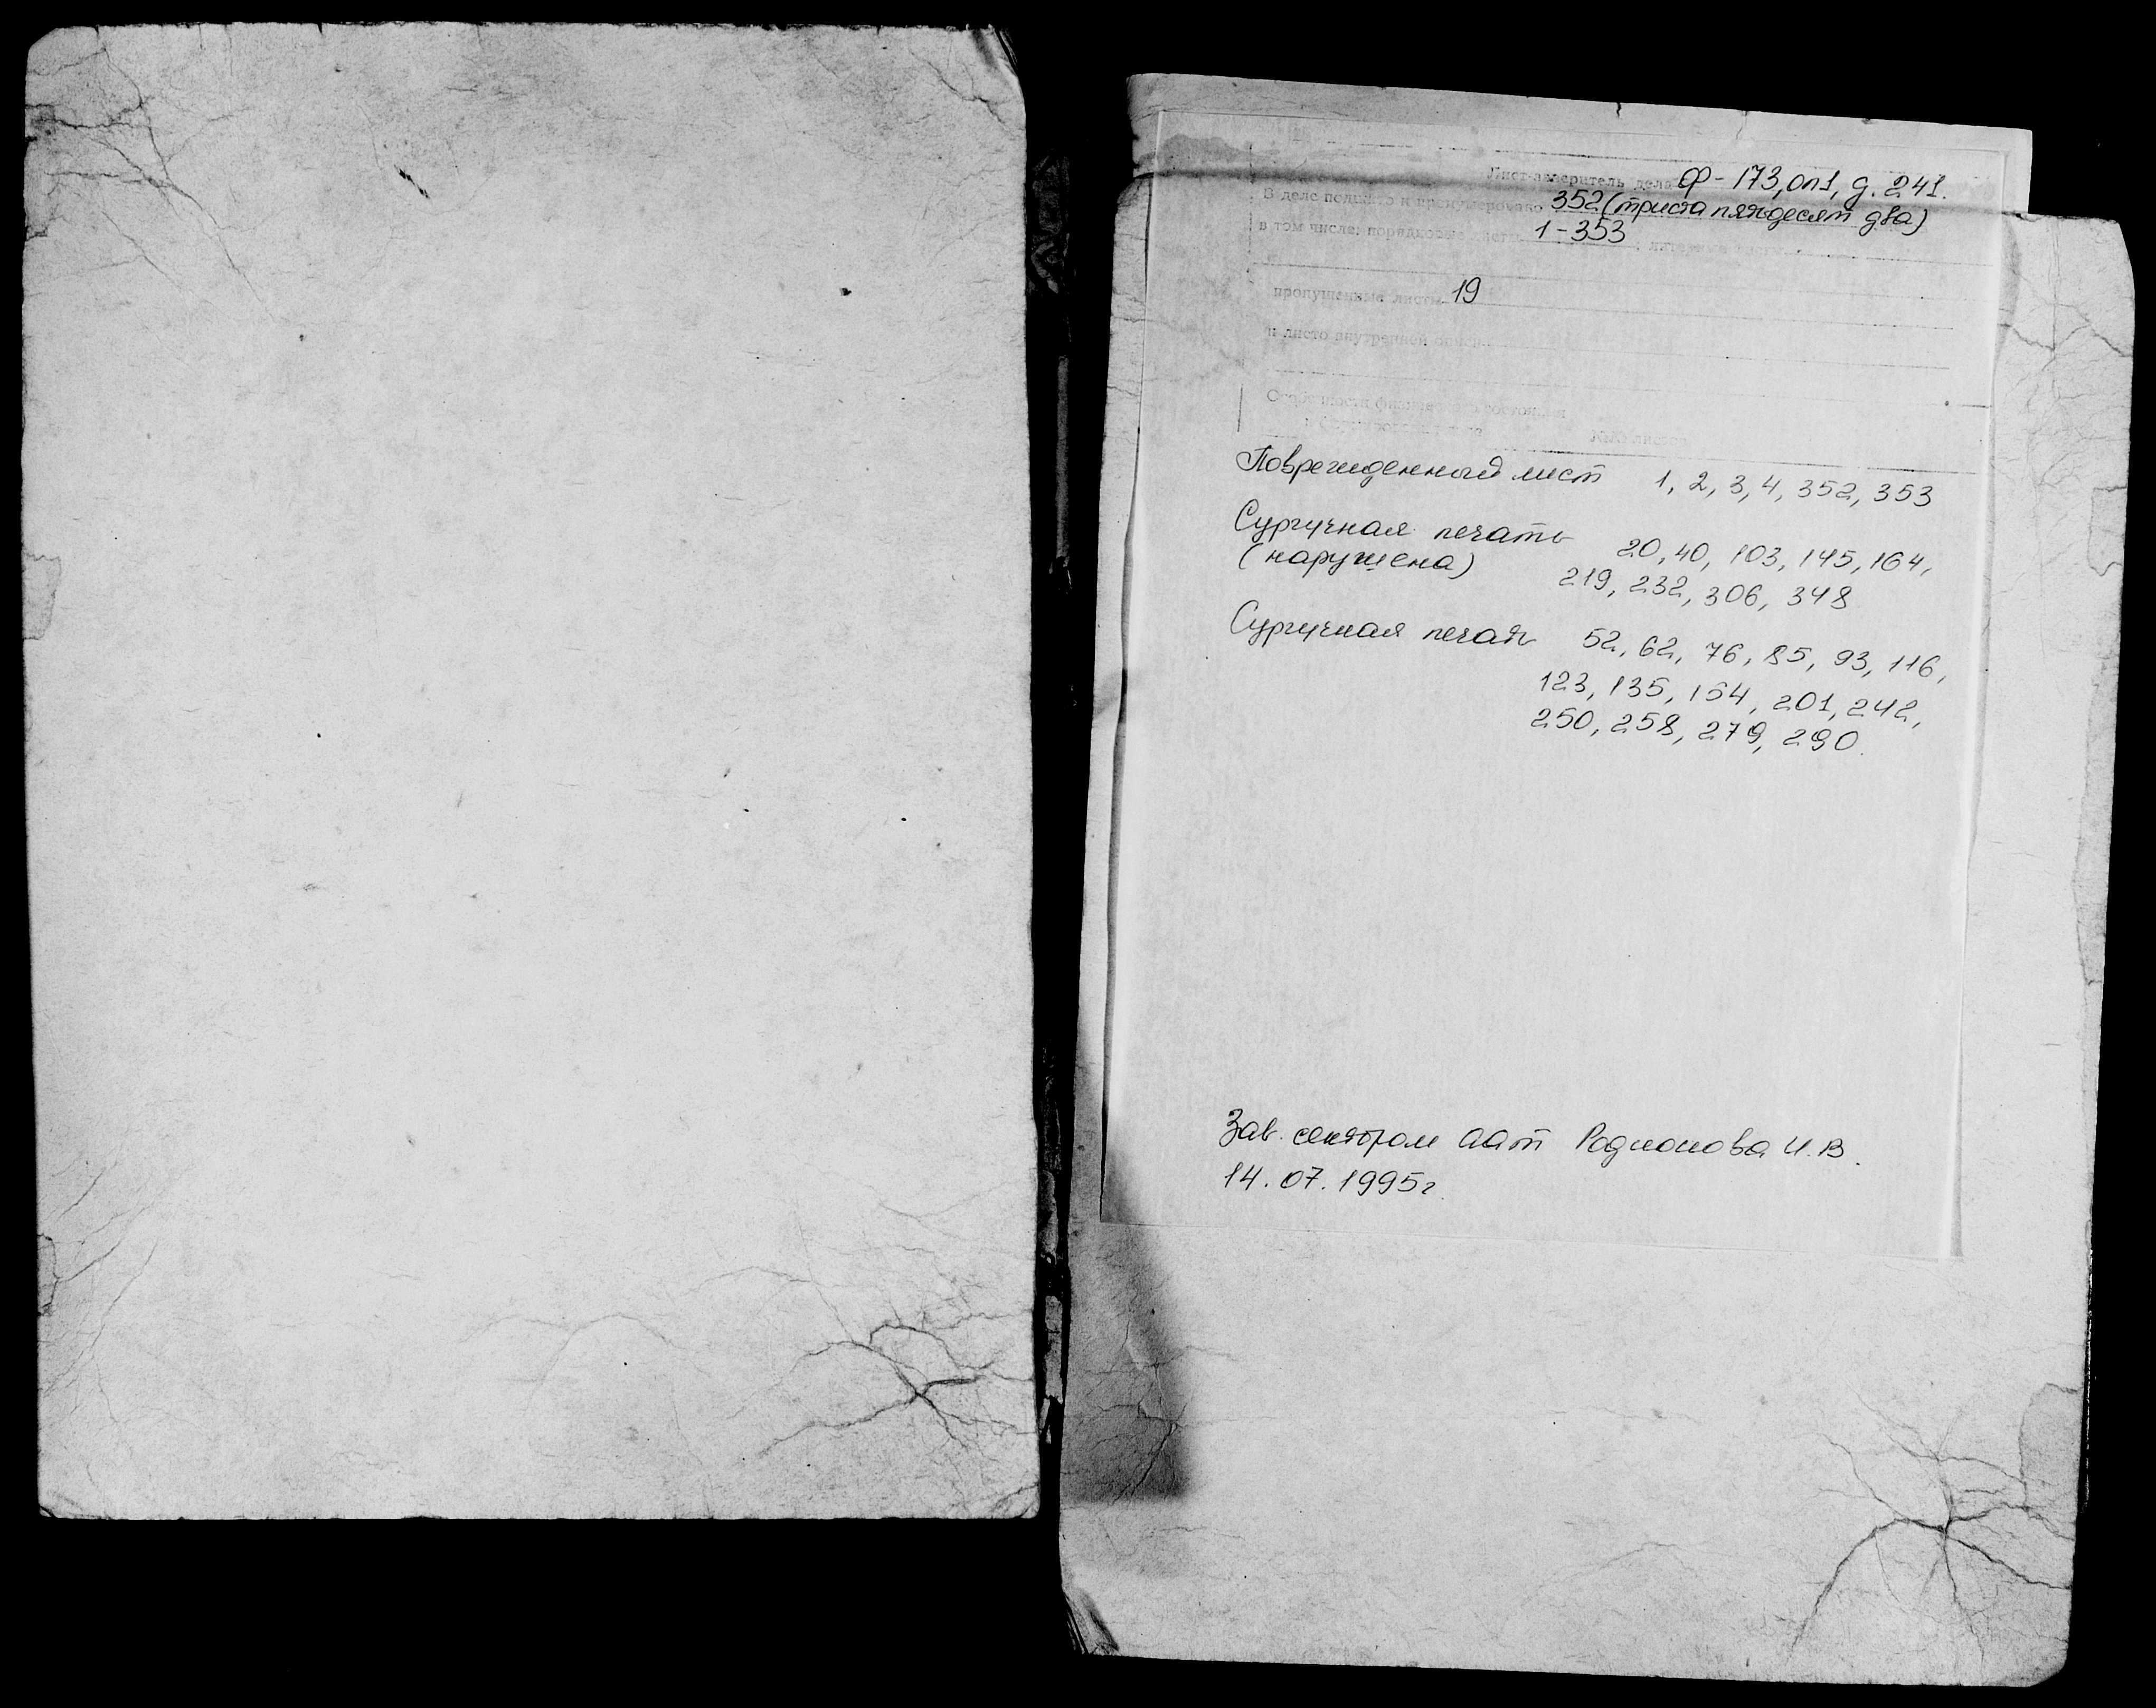 Лист-заверитель дела Ф-173, оп1, д. 241.
В деле подшито и пронумеровано 352 (триста пятьдесят два)
в том числе: порядковые листы 1-353
пропущенные листы 19
и листо внутренней описи
Особенности физического состояния
Повережденный лист 1, 2, 3, 4, 352, 353
Сургучная печать 20, 40, 103, 145, 164,
(нарушена) 219, 232, 306, 348
Сургучная печать 52, 62, 76, 85, 93, 116,
123, 135, 154, 201, 242,
250, 258, 279, 290.
Зав. сектором ААТ Родионова И.В.
14.07.1995г.